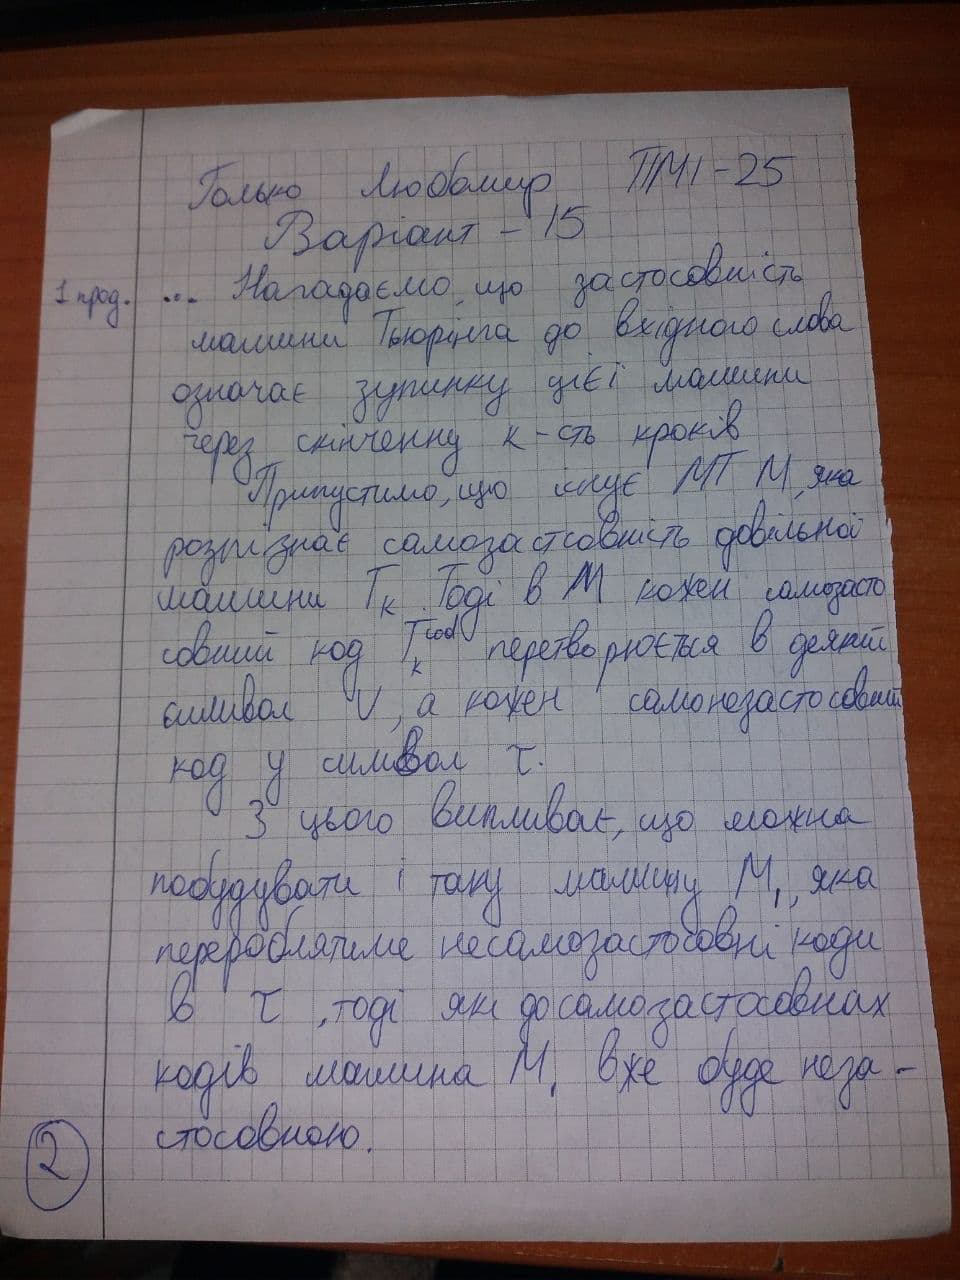 Голько Любомир ПМІ-25
Варіант - 15
1 прод. ... Нагадаємо, що застосовність
машини Тьюрінга до вхідного слова
означає зупинку цієї машини
через скінченну к-сть кроків
Припустимо, що існує МТ М, яка
розпізнає самозастсовність довільної
машини Tк. Тоді в М кожен самозасто
совний код Tкcod перетворюється в деякий
символ V, а кожен самонезастосовний
код у символ τ.
З цього випливає, що можна
побудувати і таку машину М1, яка
перероблятиме несамозастосовні коди
в τ, тоді як до самозастосовнах
кодів машина М1 вже буде неза-
стосовною.
2